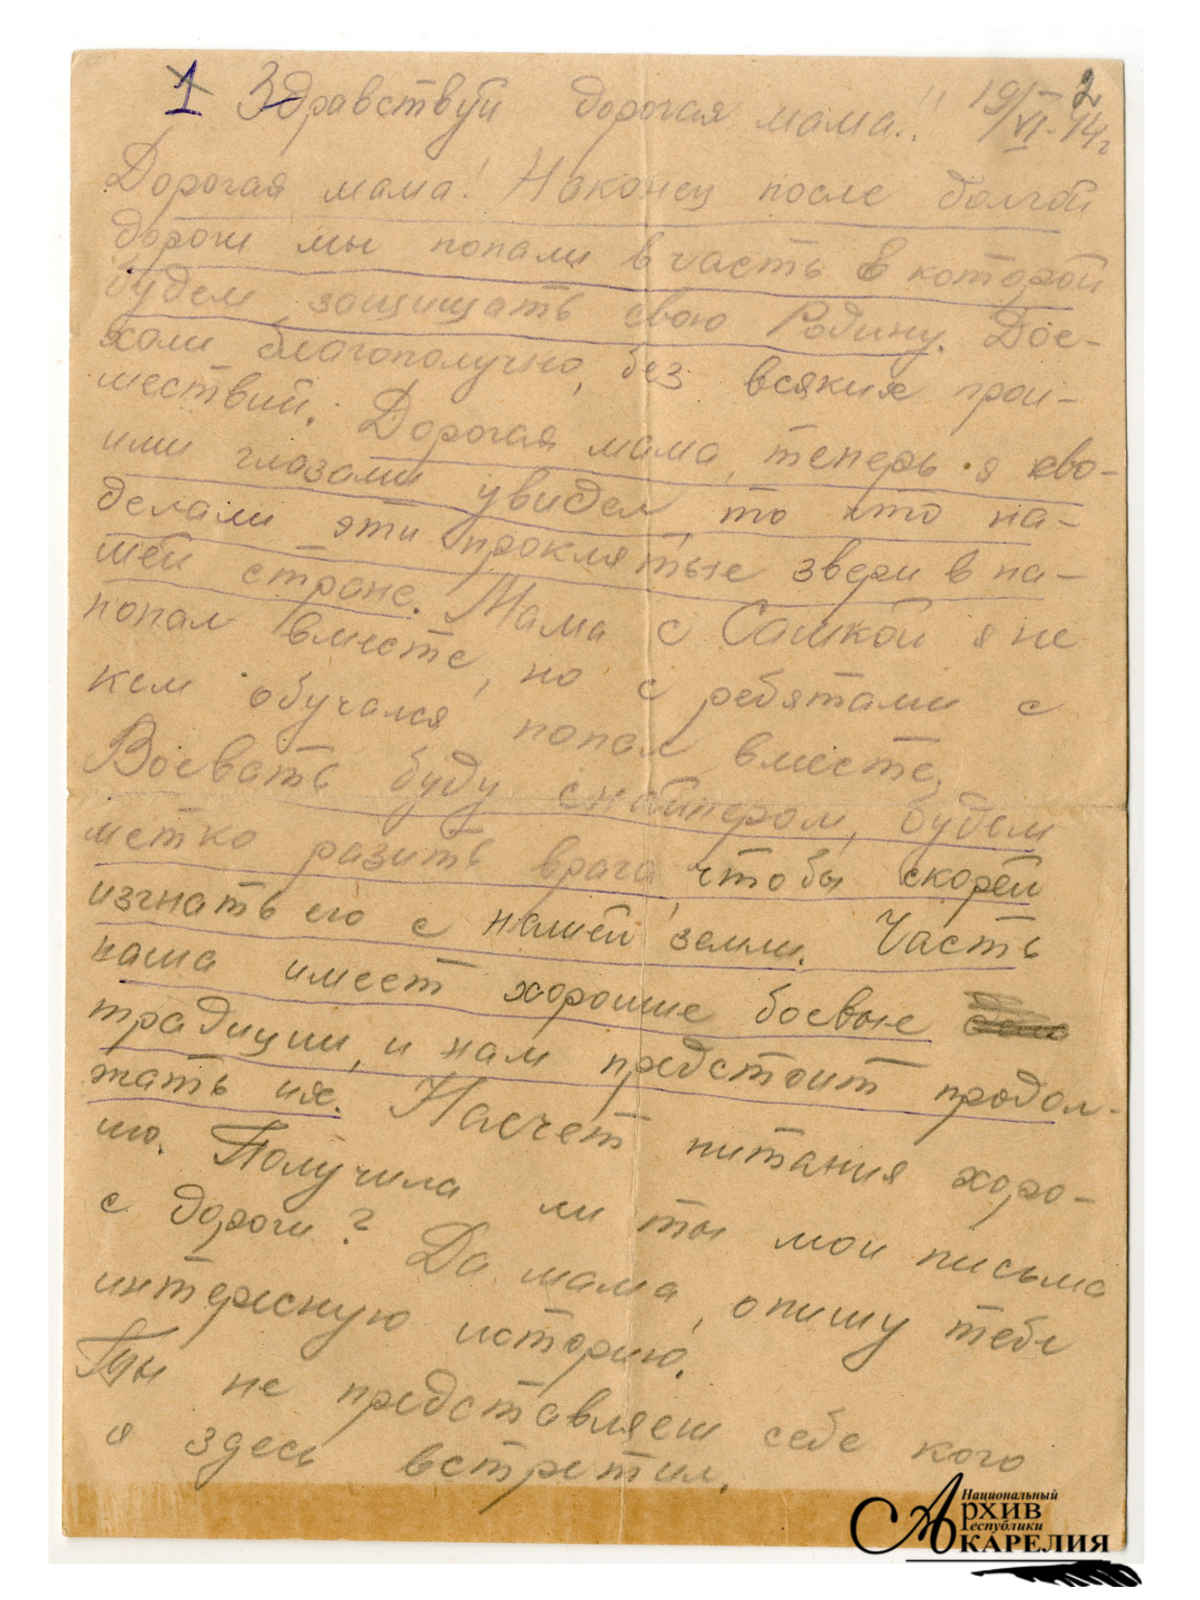 1 Здравствуй дорогая мама!! 19/VI-14г 2
Дорогая мама! Наконец после долгой
дороги мы попали в часть в которой
будем защищать свою Родину. Дое-
хали благополучно, без всяких прои-
шествий. Дорогая мама, теперь я сво-
ими глазами увидел то что на-
делали эти проклятые звери в на-
шей стране. Мама с Сашкой я не
попал вместе, но с ребятами с
кем обучался попал вместе.
Воевать буду снайпером, будем
метко разить врага чтобы скорей
изгнать его с нашей земли. Часть
наша имеет хорошие боевые
традиции, и нам предстоит продол-
жать их. Насчет питания хоро-
шо. Получила ли ты мои письма
с дороги? Да мама, опишу тебе
интересную историю.
Ты не представляеш себе кого
я здесь встретил.
Национальный
Архив
Республики
Карелия